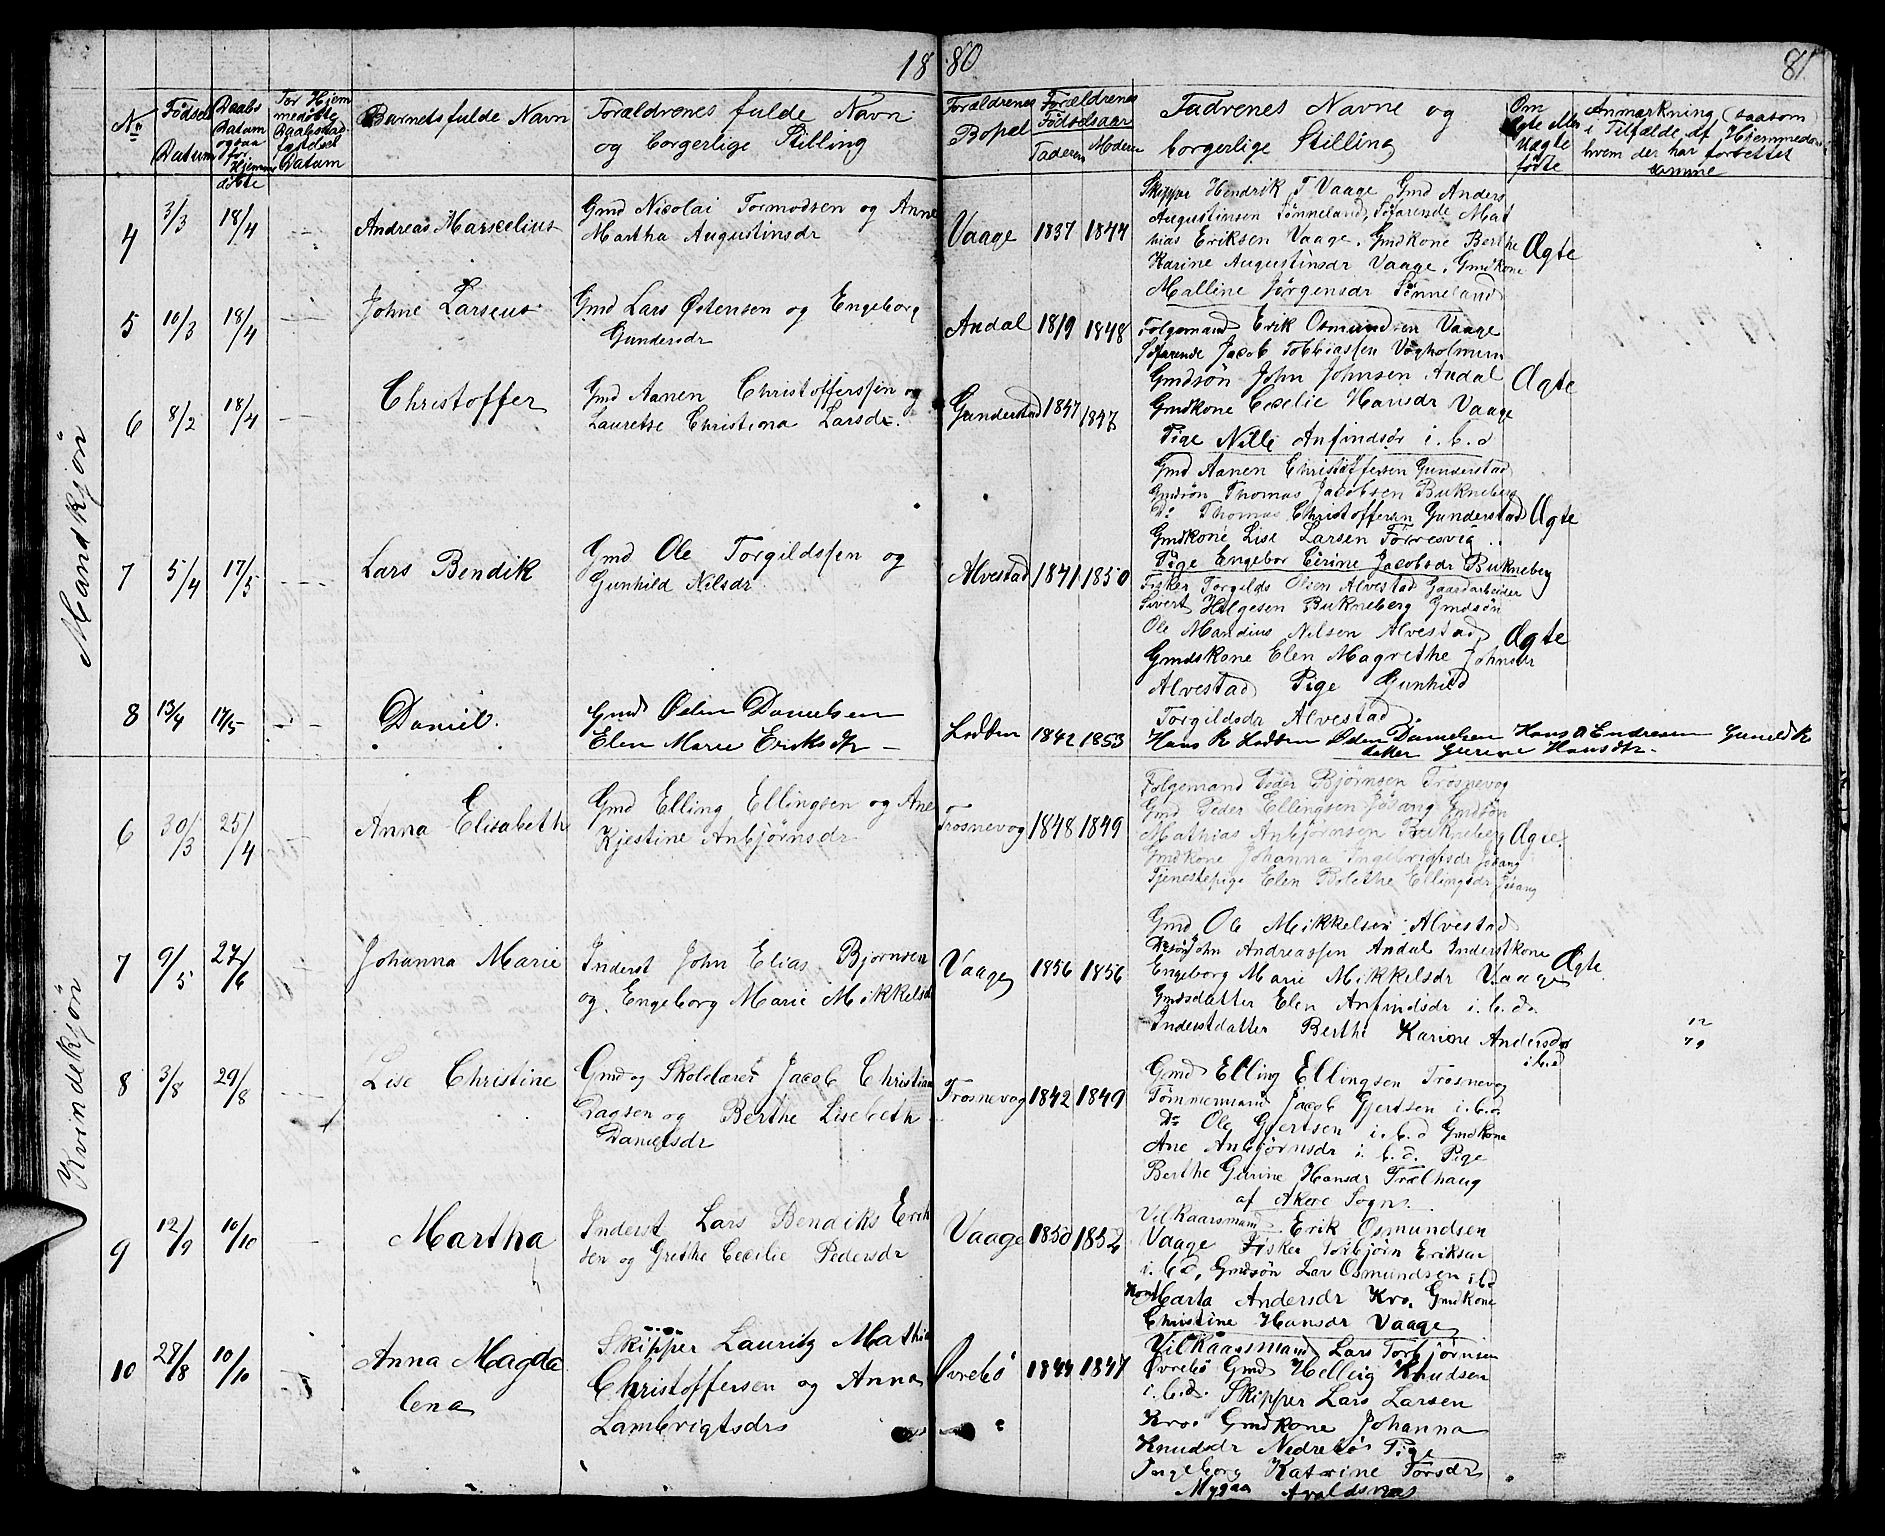 18 80
81
No
Fødsels Datum
Daabs Datum ogsaa for Hjemme døbte
For Hjem medøbte Daabsstad fæstelsel Datum
Barnets fulde Navn
Forældrenes fulde Navn og borgerlige Stilling
Forældrenes Bopel
Forældrenes Fødselsaar
Faderen Moderen
Fadrenes Navne og borgerlige Stilling
Om Ægte eller Uægte fødte
Anmærkning (saasom i Tilfælde af Hjemmedaab hvem der har forrettet samme
Mandkjøn
4 3/3 18/4 Andreas Marselius
Gmd Nicolai Tormodsen og Anne
Martha Augustinsdr
Vaage 1837 1844
Skipper Hendrik T Vaage, Gmd Anders
Augustinsen Sønneland, Søfarende Mat
hias Eriksen Vaage, Gmdkone Berthe
Karine Augustinsdr Vaage, Gmdkone
Malline Jørgensdr Sønneland
Ægte
5 10/3 18/4 Johne Larseus
Gmd Lars Østensen og Engeborg
Gundersdr
Andal 1819 1848
Folgemand Erik Osmundsen Vaage
Søfarende Jacob Tobbiassen Vogholmen
Gmdsøn John Johnsen Andal
Gmdkone Cecelie Hansdr Vaage
Pige Nille Anfindsdr i.b.d
Ægte
6 8/2 18/4 Christoffer
Gmd Aanen Christofferssen og
Lauretse Christiona Larsdr.
Gunderstad 1847 1847
Gmd Aanen Christoffersen Gunderstad
Gmdsøn Thomas Jacobsen Bukneberg
Do Thomas Christoffersen Gunderstad
Gmdkone Lise Larsen Førresvig
Pige Engebor Serine Jacobsdr Bukneberg
Ægte
7 5/4 17/5 Lars Bendik
Gmd Ole Torgildssen og
Gunhild Nilsdr
Alvestad 1841 1850
Fisker Torgilds Olsen Alvestad Gaardarbeider
Sivert Helgesen Bukneberg Gmdsøn
Ole Mandius Nilsen Alvestad
Gmdskone Elen Magrethe Johnsdr
Alvestad Pige Gunhild
Torgildsdr Alvestad
Ægte
8 13/4 17/5 Daniel.
Gmd Øden Danielsen
Elen Marie Eriksdtr
Lodden 1842 1853
Hans R Lodden Øden Danielsen Hans O Endresen Gunild K
datter Gurine Hansdtr
Kvindekjøn
6 30/3 25/4 Anna Elisabeth
Gmd Elling Ellingsen og Ane
Kjestine Anbjørnsdr
Trosnevog 1848 1849
Folgemand Peder Bjørnsen Trosnevog
Gmd Peder Ellingsen Jøsang Gmdsøn
Mathias Anbjørnsen Bukneberg
Gmdkone Johanna Ingebrigtsdr Jøsang
Tjenestepige Elen Bolethe Ellingsdr Jøsang
Ægte
7 9/5 27/6 Johanna Marie
Inderst John Elias Bjørnsen
og Engeborg Marie Mikkelsdr
Vaage 1856 1856
Gmd Ole Mikkelsen Alvestad
Do søn John Andreassen Andal Inderstkone
Engeborg Marie Mikkelsdr Vaage
Gmdsdatter Elen Anfindsdr i.b.d.
Inderstdatter Berthe Karine Andersdr
i.b.d
Ægte
12
79
8 3/8 29/8 Lise Christine
Gmd og Skolelærer Jacob Christian
Daasen og Berthe Lisebeth
Danielsdr
Trosnevog 1842 1849
Gmd Elling Ellingsen Trosnevog
Tømmermand Jacob Gjertsen i.b.d
Do Ole Gjertsen i.b.d Gmdkone
Ane Anbjørnsdr i.b.d. Pige
Berthe Gurine Hansdr Trælhaug
af Akre Sogn.
9 12/9 10/10 Martha
Inderst Lars Bendiks Erik
sen og Grethe Cecilie Pedersdr
Vaage 1850 1852
Vilkaarsmand Erik Osmundsen
Vaage Fisker Torbjørn Eriksen
i.b.d, Gmdsøn Lars Osmundsen i.b.d
Kone Marta Andersdr Kro, Gmdkone
Christine Hansdr Vaage
10 28/8 10/10 Anna Magda
lena
Skipper Lauritz Mathia
Christoffersen og Anna
Lambrigtsdr
Øvrebø 1844 1847
Vilkaarsmand Lars Torbjørnsen
Øvrebø Gmd Helleig Knudsen
i.b.d. Skipper Lars Larsen
Kro, Gmdkone Johanna
Knudsdr Nedrebø Pige
Ingeborg Katrine Torsdr
Mygaa Avaldsnæs